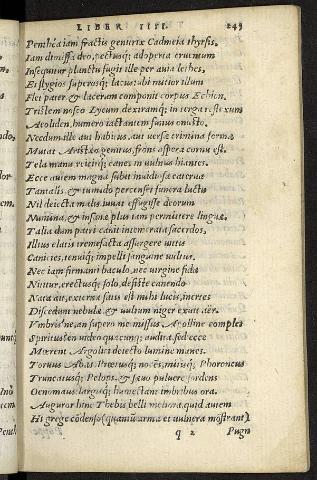 LIBER IIII. 245
Penthea iam fractis genitrix Cadmeia thyrsis,
Iam dimissa deo, pectusq; adoperta cruentum
Insequitur planctu: fugit ille per auia lethes,
Et stygios superosq; lacus: ubi mitior illum
Flet pater, & lacerum componit corpus Echion.
Tristem nosco Lycum dextramq; in terga reflexum
Aeoliden, humero iactantem funus onusto.
Necdum ille aut habitus, aut uersæ crimina formæ
Mutat Aristæo genitus, frons aspera cornu est.
Tela manu reijcitq; canes in uulnus hiantes.
Ecce autem magna subit inuidiosa caterua
Tantalis, & tumido percenset funera luctu
Nil deiecta malis, iuuat effugisse deorum
Numina, & insanæ plus iam permittere linguæ.
Talia dum patri canit intemerata sacerdos,
Illius elatis tremefacta assurgere uittis
Canities, tenuiq; impelli sanguine uultus.
Nec iam firmanti baculo, nec uirgine fida
Nititur, erectusq; solo, desiste canendo
Nata ait, externæ satis est mihi lucis, inertes
Discedunt nebulæ, & uultum niger exuit aer.
Vmbris'ne, an supero me missus Apolline complet
Spiritus? en uideo quæcunq; audita. sed ecce
Mœrent Argolici deiecto lumine manes.
Toruus Abas, Prœtusq; nocēs, mitisq; Phoroneus
Truncatusq; Pelops, & sæuo puluere sordens
Oenomaus, largis humectant imbribus ora.
Auguror hinc Thebis belli meliora. quid autem
Hi grege cōdenso (quantū arma et uulnera mōstrant)
q 2 Pugn